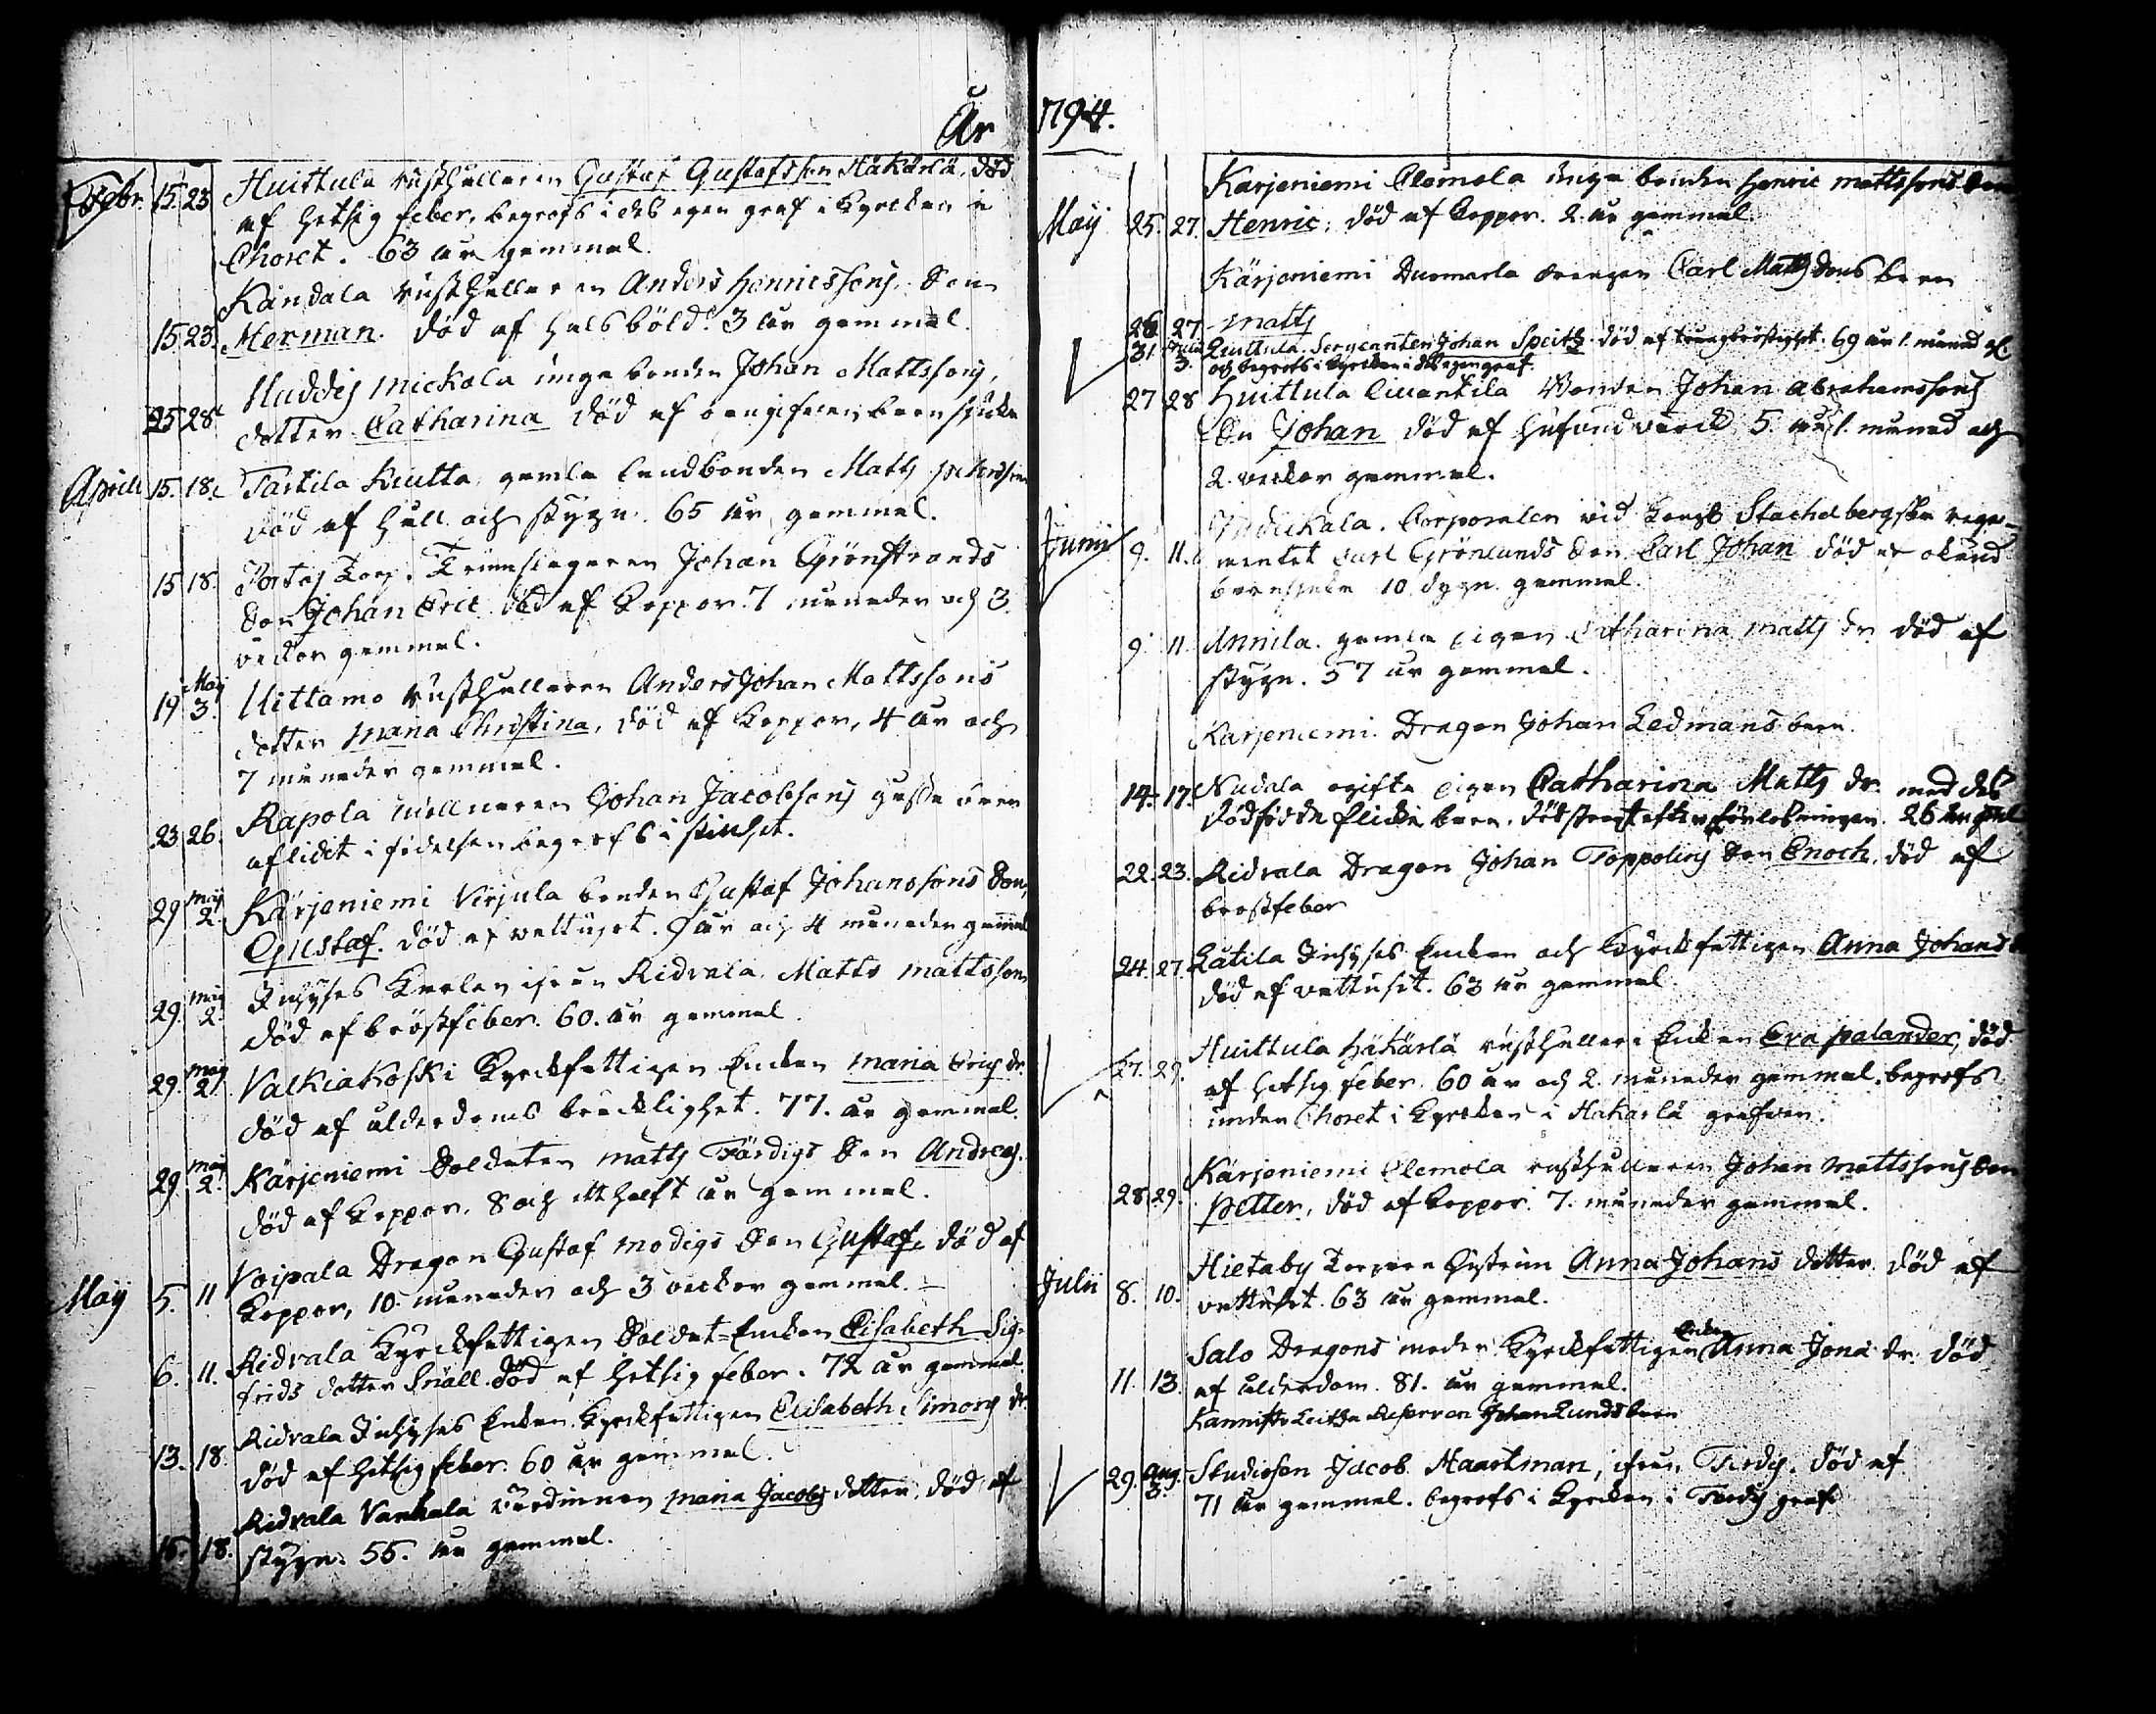 År
Febr. 15. 23 Huittula rusthållaren Gustaf Gustafsson Häkärlä, död
af hetsig feber, begrofs i des egen graf i Kyrckan in
Choret. 63 åhr gammal.
Kandala rusthållaren Anders Henricssons Son
15. 23. Herman. död af halsböld. 3 åhr gammal.
Huddis Mickola unga bonden Johan Mattssons,
25 28 dotter Catharina död af oangifven barnsjuka
Aprill 15. 18. Tastila Knutta, gamla landbonden Matts
död af håll och stygn. 65 åhr gammal.
15 18. Johan Grönstrands
Son Johan Eric död af Koppor. 7 månader och 3
veckor gammal.
19 Maij 3. Uittamo rusthållaren Anders Johan Mattssons
dotter Maria Christina, död af Koppor, 4 åhr och
7 månader gammal.
23 26. Rapola Johan Jacobssons
aflidet i födelsen begrofs i stillhet.
29 Maij 2. Kärjeniemi Virjula bonden Gustaf Johanssons Son,
Gustaf. död af vattusot. åhr och 4 månader gammal
29. Maij 2. Inhyses Karlen ifrån Ridvala Matts Mattsson
död af bröstfeber. 60. åhr gammal.
29. Maij 2. Valkiakoski Kyrckfattigen Enckan Maria Erics dr.
död af ålderdoms bräcklighet. 77. åhr gammal.
29. Maij 2. Kärjeniemi Soldaten Matts Färdigs Son Andreas.
död af Koppor. 8 och ett halft åhr gammal.
Voipala Dragon Gustaf Modigs Son Gustaf, död af
Maij 5. 11 Koppor, 10. månader och 3 veckor gammal.
6. 11. Ridvala Kyrckfattigen Soldat-Enckan Elisabeth Sig-
frids dotter Snäll död af hetsig feber. 72 åhr gammal.
Ridvala Inhyses Enckan Kyrckfattigen Elisabeth Simons dr.
13. 18. död af hetsig feber. 60 åhr gammal.
Ridvala Vanhala värdinnan Maria Jacobs dotter, död af
15. 18. stygn. 55. åhr gammal.
1794.
Kärjeniemi Clemola unga bonden Henric Mattssons Son
Maij 25. 27. Henric, död af Koppor. 2. åhr gammal.
Kärjeniemi drengen Carl Matts Sons barn
26 27 Matts
31 Junii 3. Huittula Sergeanten Johan Speitz död af trångbröstighet. 69 åhr 1. månad gl.
och begrofs i Kyrckan i des egen graf.
27 28 Huittula Bonden Johan Abrahamssons
Son Johan död af hufvudvärck 5. åhr 1. månad och
2. veckor gammal.
Corporalen vid Kongl Stachelbergska rege-
Junii 9. 11. mentet Carl Grönlunds Son Carl Johan död af okänd
barnsjuka 10 dygn. gammal.
9. 11. Annila. gamla pigan Catharina Matts dr. död af
stygn. 57 åhr gammal.
Kärjeniemi Dragon Johan Ledmans barn.
14. 17. ogifta pigan Catharina Matts dr. med des
dödfödda flicke barn. död straxt efter förlossningen. 26 åhr gml.
22. 23. Ridvala Dragon Johan Toppelius Son Enoch, död af
bröstfeber
24. 27. Inhyses Enckan och Kyrckfattigen Anna Johans
död af vattusot. 63 åhr gammal.
27. 29. Huittula Häkärlä rusthållare Enckan Eva Palander, död
af hetsig feber. 60 åhr och 2. månader gammal. begrofs
under Choret i Kyrckan i Häkärlä grafven.
Kärjeniemi Clemola rusthållaren Johan Mattssons Son
28 29. Petter, död af koppor. 7. månader gammal.
Hietaby hustrun Anna Johans dotter död af
Julii 8. 10. vattusot. 63 åhr gammal.
Salo Dragons moder Kyrckfattigen Enckan Anna Jona dr. död
11. 13. af ålderdom. 81. åhr gammal.
Johan Lunds barn
29. Aug. 3. Studiosen Jacob Haartman, ifrån död af
71 åhr gammal. begrofs i Kyrckan i graf